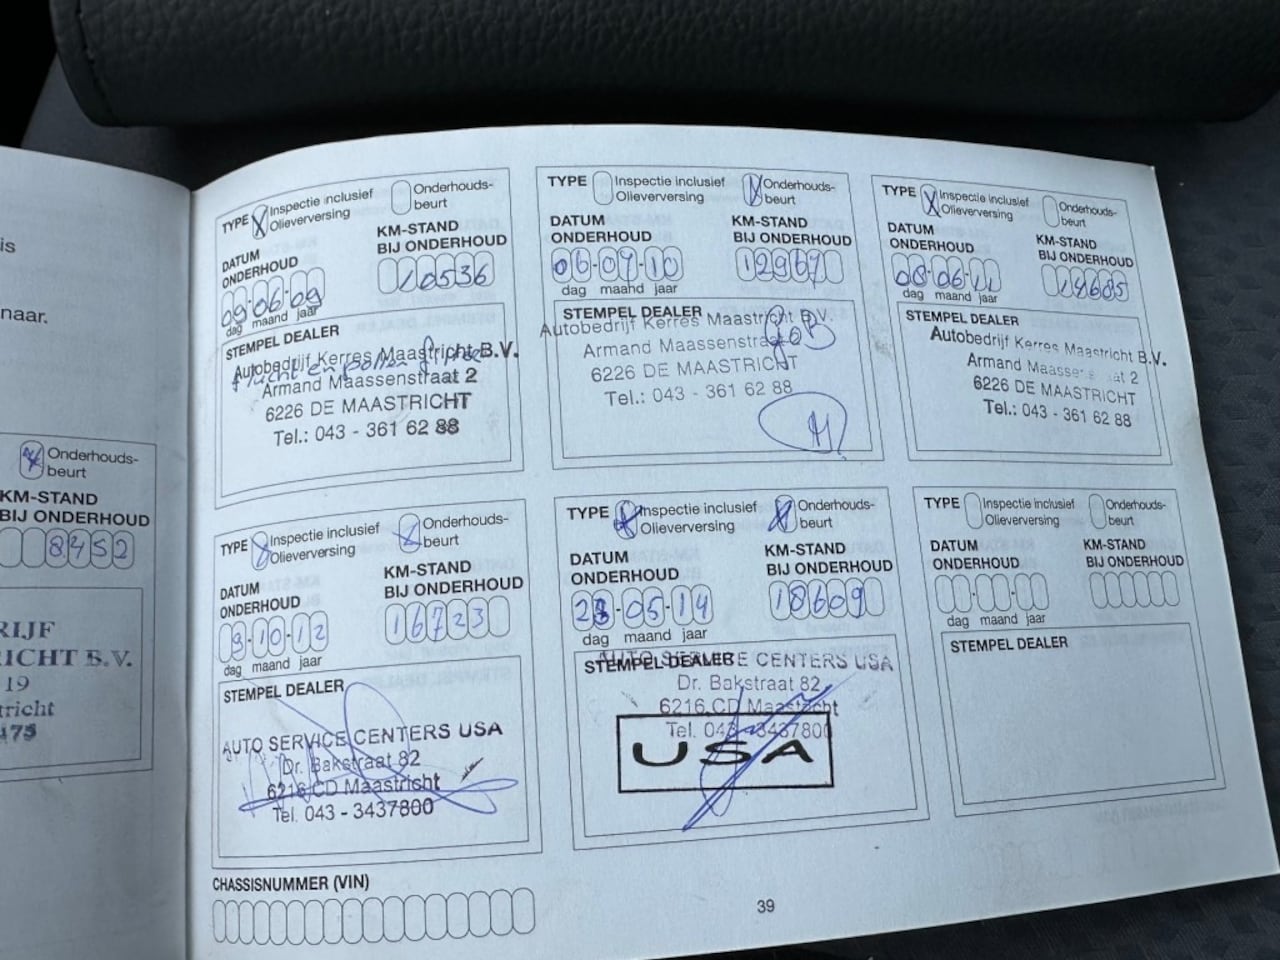 is
naar.
Onderhouds-
beurt
KM-STAND
BIJ ONDERHOUD
8452
RIJF
RICHT B.V.
19
tricht
475
TYPE X Inspectie inclusief
Olieverversing
Onderhouds-
beurt
DATUM
ONDERHOUD
KM-STAND
BIJ ONDERHOUD
09-06-09
10536
dag maand jaar
STEMPEL DEALER
Autobedrijf Kerres Maastricht B.V.
Armand Maassenstraat 2
6226 DE MAASTRICHT
Tel.: 043 - 361 62 88
TYPE Inspectie inclusief
Olieverversing
Onderhouds-
beurt
DATUM
ONDERHOUD
KM-STAND
BIJ ONDERHOUD
06-07-10
12967
dag maand jaar
STEMPEL DEALER
Autobedrijf Kerres Maastricht B.V.
Armand Maassenstraat 2
6226 DE MAASTRICHT
Tel.: 043 - 361 62 88
TYPE X Inspectie inclusief
Olieverversing
Onderhouds-
beurt
DATUM
ONDERHOUD
KM-STAND
BIJ ONDERHOUD
08-06-11
14685
dag maand jaar
STEMPEL DEALER
Autobedrijf Kerres Maastricht B.V.
Armand Maassenstraat 2
6226 DE MAASTRICHT
Tel.: 043 - 361 62 88
TYPE Inspectie inclusief
Olieverversing
Onderhouds-
beurt
DATUM
ONDERHOUD
KM-STAND
BIJ ONDERHOUD
9-10-12
16723
dag maand jaar
STEMPEL DEALER
AUTO SERVICE CENTERS USA
Dr. Bakstraat 82
6216 CD Maastricht
Tel. 043 - 3437800
TYPE Inspectie inclusief
Olieverversing
Onderhouds-
beurt
DATUM
ONDERHOUD
KM-STAND
BIJ ONDERHOUD
-05-14
18609
dag maand jaar
STEMPEL DEALER
AUTO SERVICE CENTERS USA
Dr. Bakstraat 82
6216 CD Maastricht
Tel. 043 - 3437800
USA
TYPE Inspectie inclusief
Olieverversing
Onderhouds-
beurt
DATUM
ONDERHOUD
KM-STAND
BIJ ONDERHOUD
dag maand jaar
STEMPEL DEALER
CHASSISNUMMER (VIN)
39